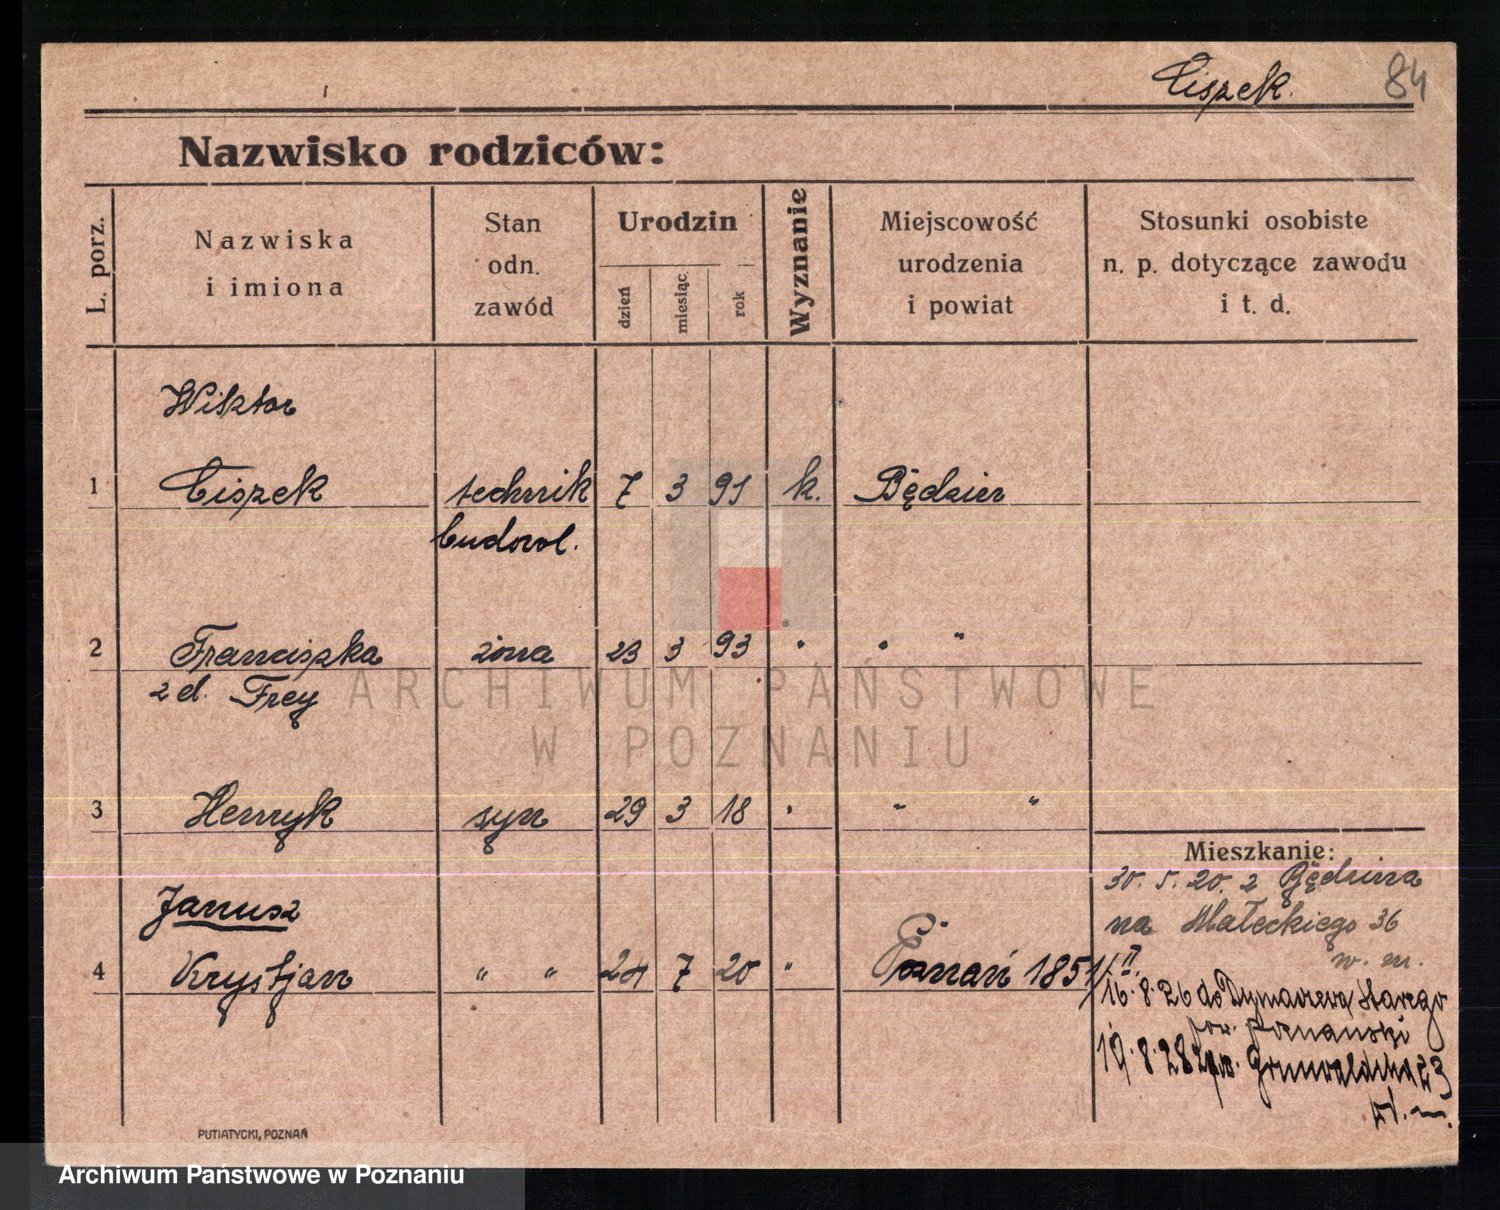 Ciszek. 84
Nazwisko rodziców:
L. porz.
Nazwiska
i imiona
Stan
odn.
zawód
Urodzin
dzień
miesiąc
rok
Wyznanie
Miejscowość
urodzenia
i powiat
Stosunki osobiste
n. p. dotyczące zawodu
i t. d.
Wiktor
1 Ciszek technik 7 3 91 k. Będzin
budowl.
2 Franciszka żona 23 3 93 " " "
z d. Frey
3 Henryk syn 29 3 18 " " "
Mieszkanie:
30. 5. 20. z Będzina
na Małeckiego 36
w. m.
Janusz
4 Krystjan " " 24 7 20 " Poznań 1851/II
16.8.26 do Starego
pow. Poznański
19.8.28 Grunwaldzka 23
PUTIATYCKI, POZNAŃ
ARCHIWUM PAŃSTWOWE
W POZNANIU
Archiwum Państwowe w Poznaniu